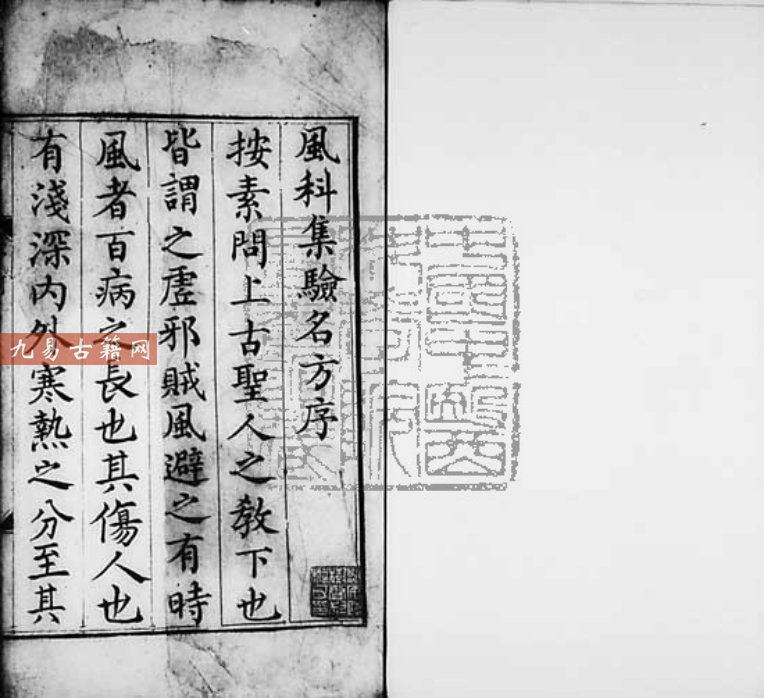 風科集驗名方序
按素問上古聖人之教下也
皆謂之虛邪賊風避之有時
風者百病之長也其傷人也
有淺深內外寒熱之分至其
九易古籍网